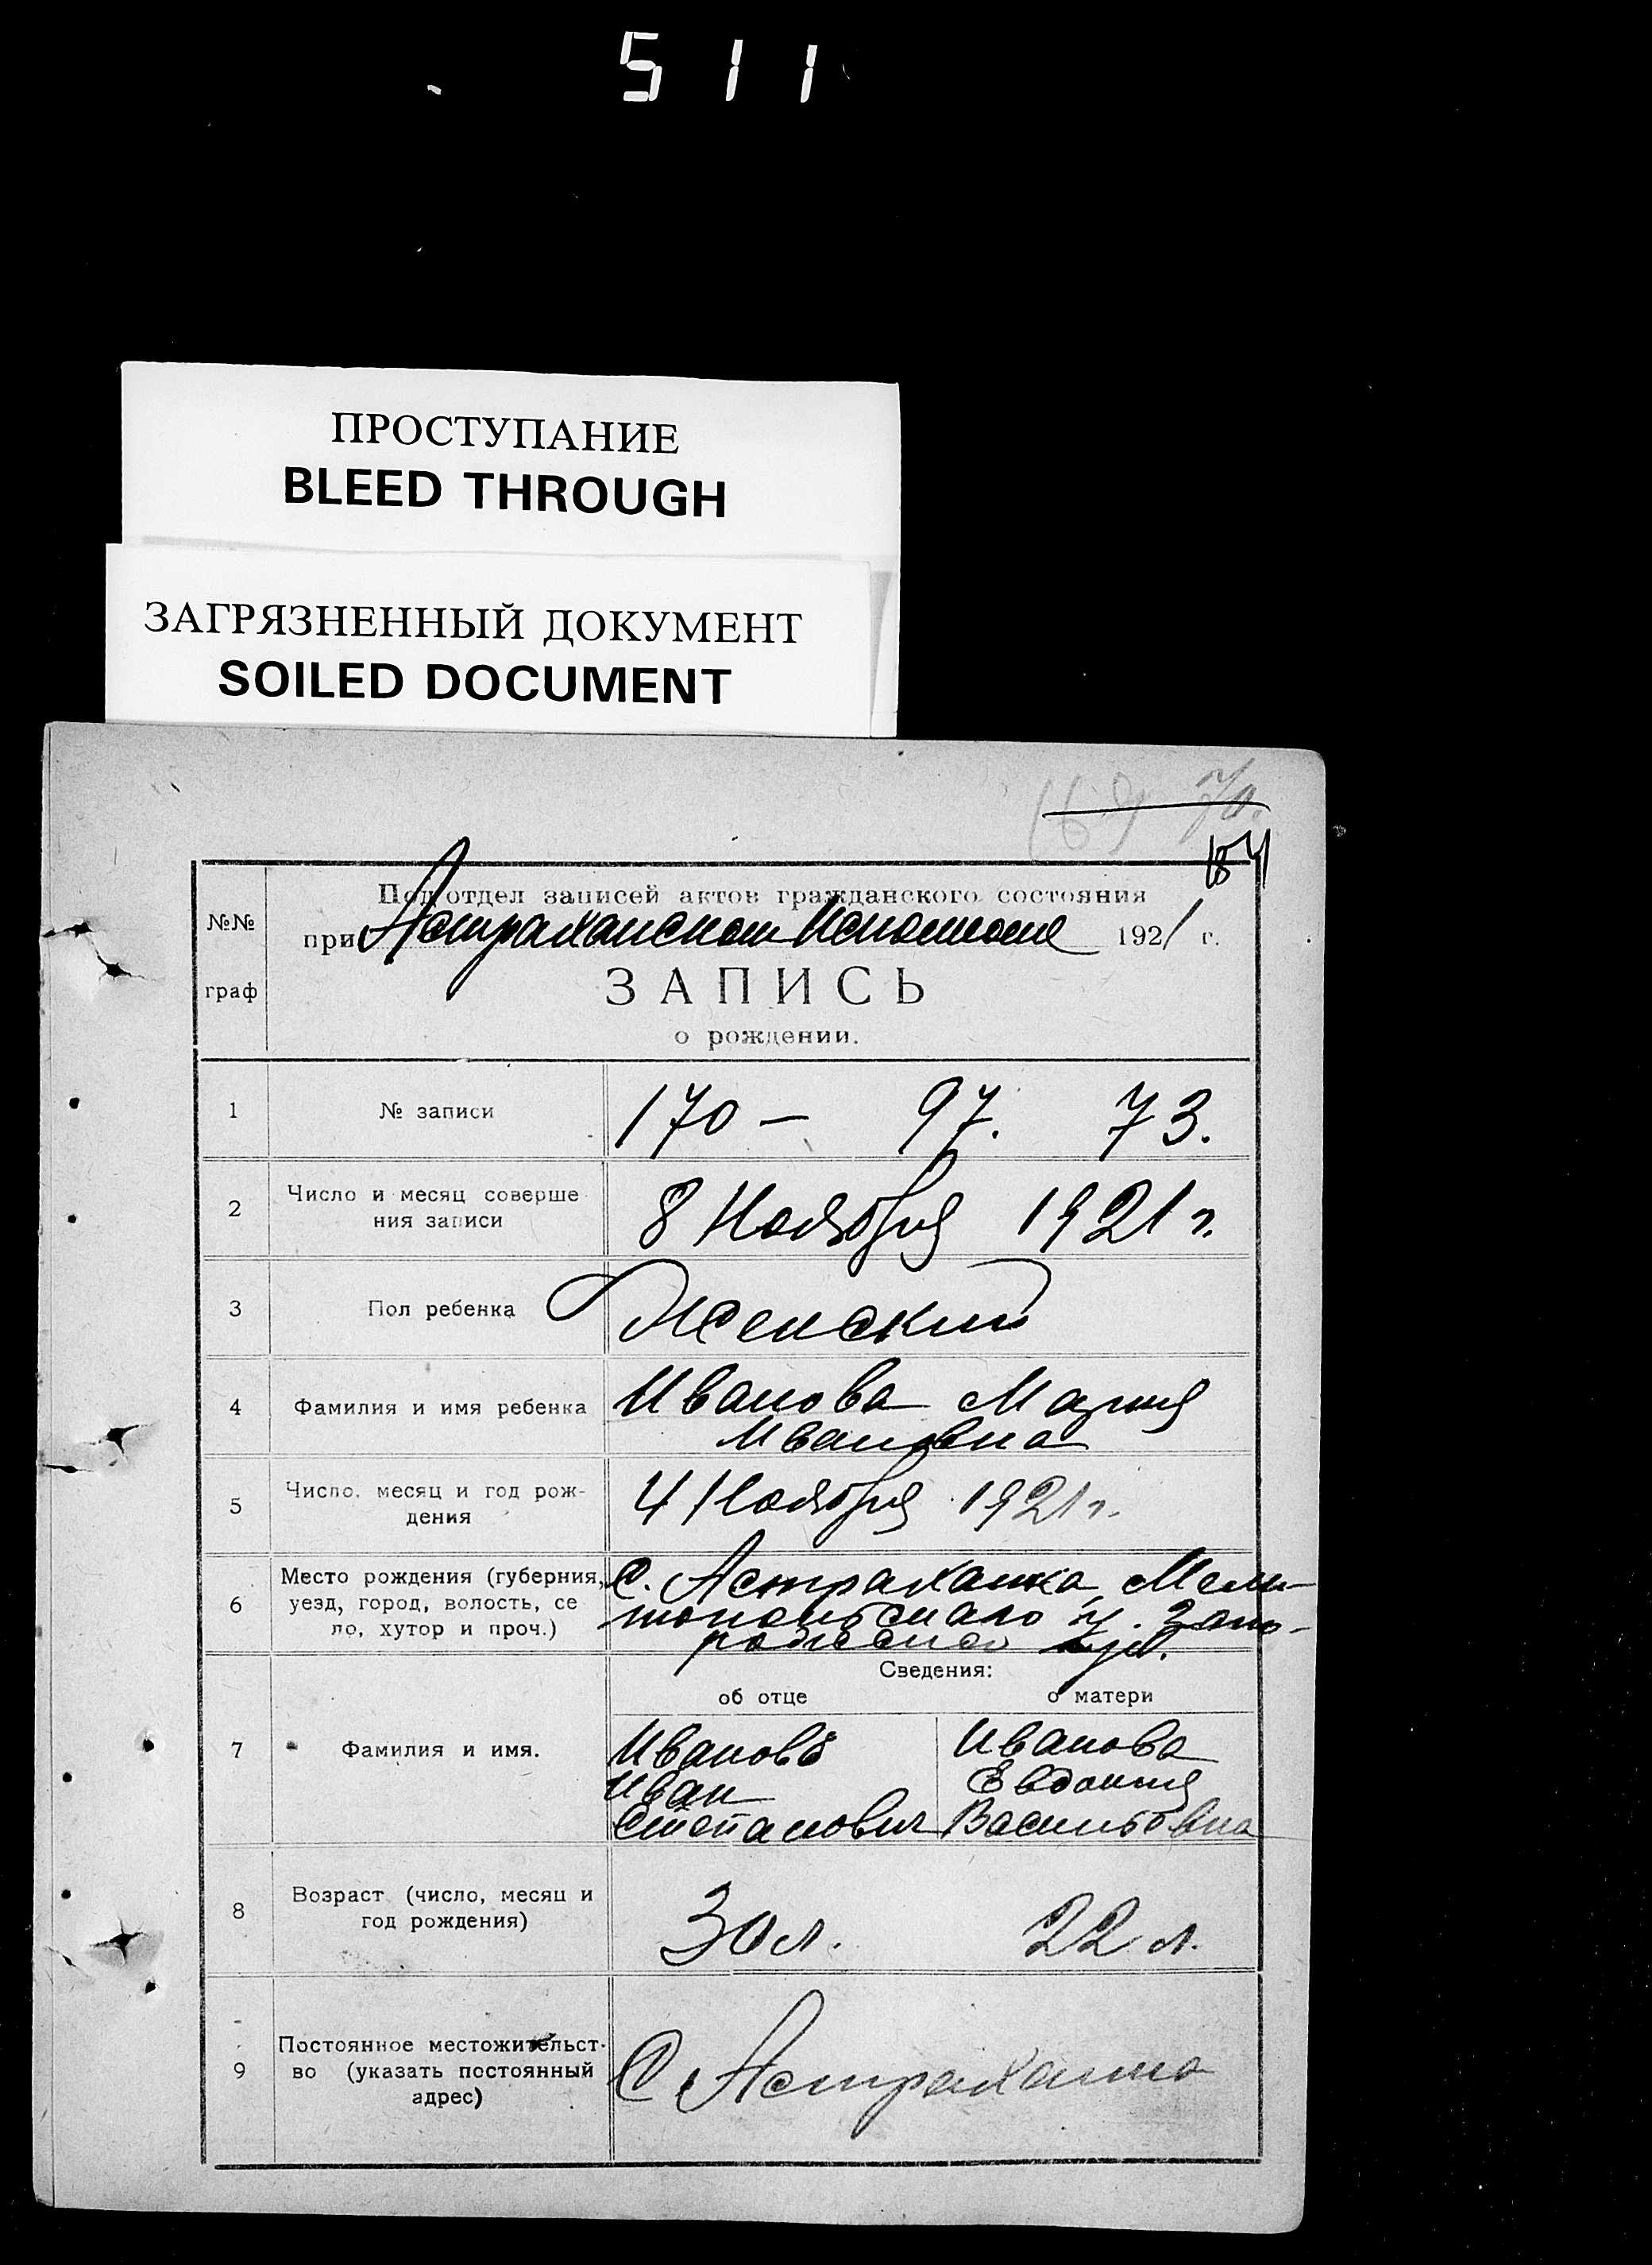 511
ПРОСТУПАНИЕ
BLEED THROUGH
ЗАГРЯЗНЕННЫЙ ДОКУМЕНТ
SOILED DOCUMENT
70.
№№
граф
Подотдел записей актов гражданского состояния
при Астраханском Исполкоме 1921 г.
ЗАПИСЬ
о рождении.
1 № записи 170 — 97. 73.
2 Число и месяц соверше
ния записи
8 Ноября 1921 г.
3 Пол ребенка Женский
4 Фамилия и имя ребенка
Иванова Мария
Ивановна
5 Число, месяц и год рож-
дения
4 Ноября 1921 г.
6 Место рождения (губерния,
уезд, город, волость, се
ло, хутор и проч.)
С. Астраханка, Мели-
топольского у. Запо-
рожской губ.
Сведения:
об отце о матери
7 Фамилия и имя.
Ивановъ
Иван
Степанович
Иванова
Евдокия
Васильевна
8 Возраст (число, месяц и
год рождения)
30 л. 22 л.
9 Постоянное местожительст-
во (указать постоянный
адрес)
С Астраханка